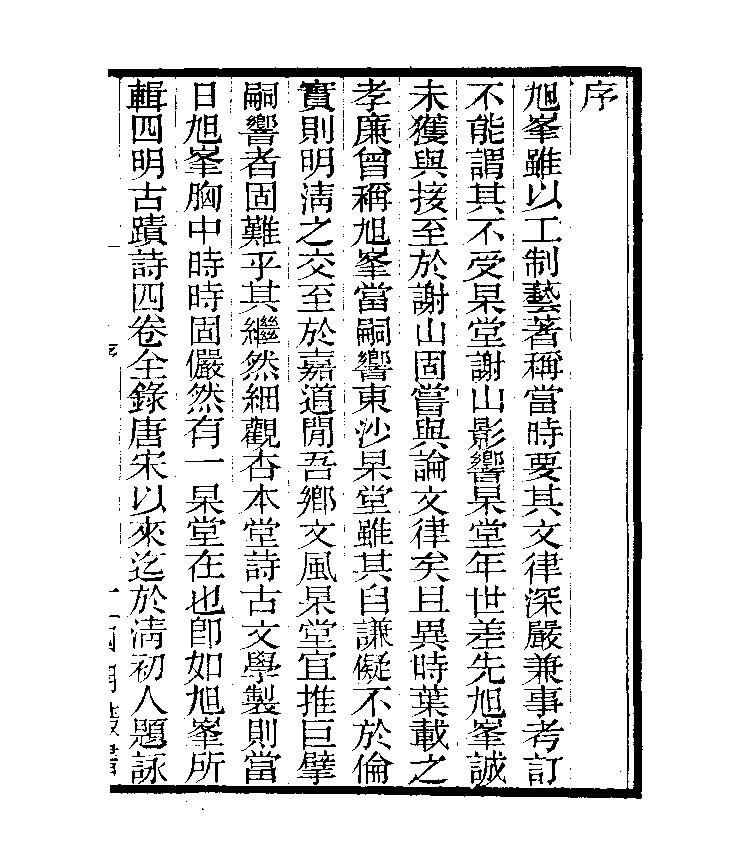 序
旭峯雖以工制藝著稱當時要其文律深嚴兼事考訂
不能謂其不受杲堂謝山影響杲堂年世差先旭峯誠
未獲與接至於謝山固嘗與論文律矣且異時葉載之
孝廉曾稱旭峯當嗣響東沙杲堂雖其自謙儗不於倫
實則明淸之交至於嘉道閒吾鄉文風杲堂宜推巨擘
嗣響者固難乎其繼然細觀杏本堂詩古文學製則當
日旭峯胸中時時固儼然有一杲堂在也卽如旭峯所
輯四明古蹟詩四卷全錄唐宋以來迄於淸初人題詠
序